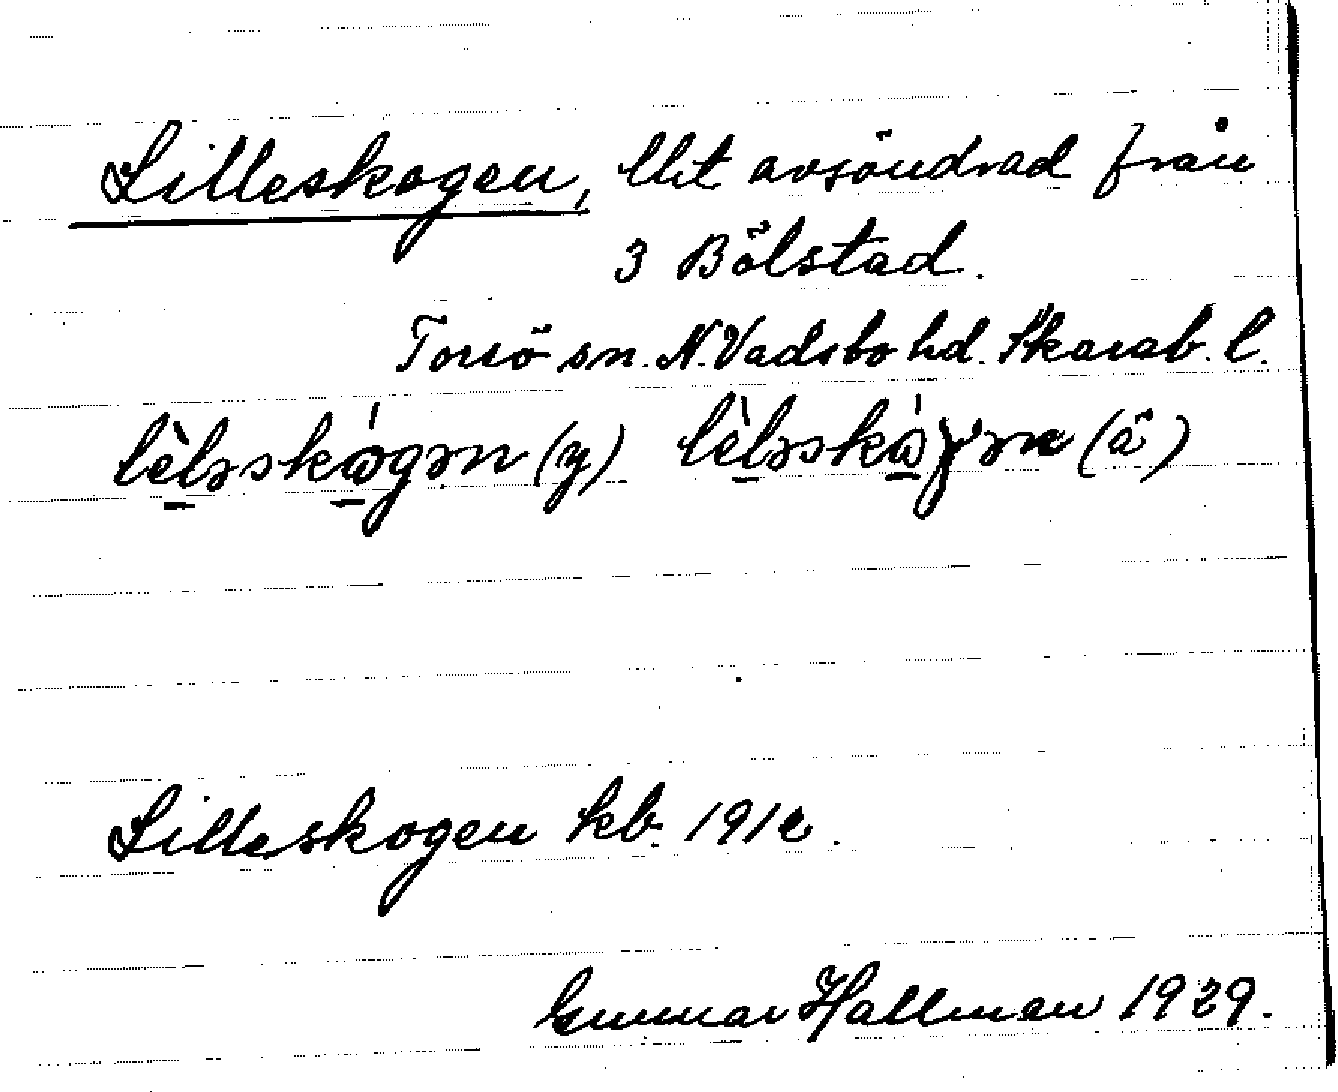 Lilleskogen, lht avsöndrad från
3 Bölstad.
Torsö sn. N. Vadsbo hd. Skarab. l.
lèləskågən (y) lèləskåɣən (ä)
Lilleskogen kb. 191
Gunnar Hallman 1929.